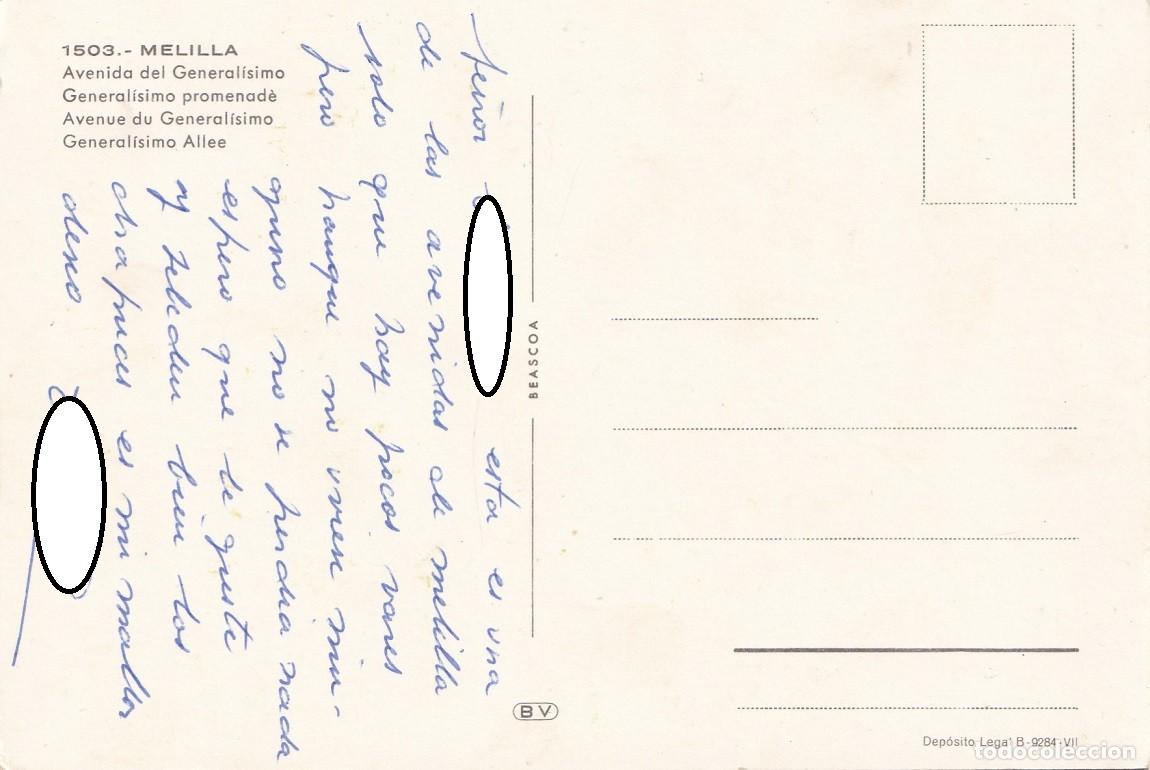 1503.- MELILLA
Avenida del Generalísimo
Generalísimo promenadè
Avenue du Generalísimo
Generalísimo Allee
señor esta es una
de las avenidas de melilla
solo que hay pocos vares
pero haunque no uviera nin-
guno no se perdia nada
espero que te guste
y feliciten bien los
otra pues es mi mallor
deseo
BEASCOA
BV
Depósito Legal B-9284-VII
todocoleccion